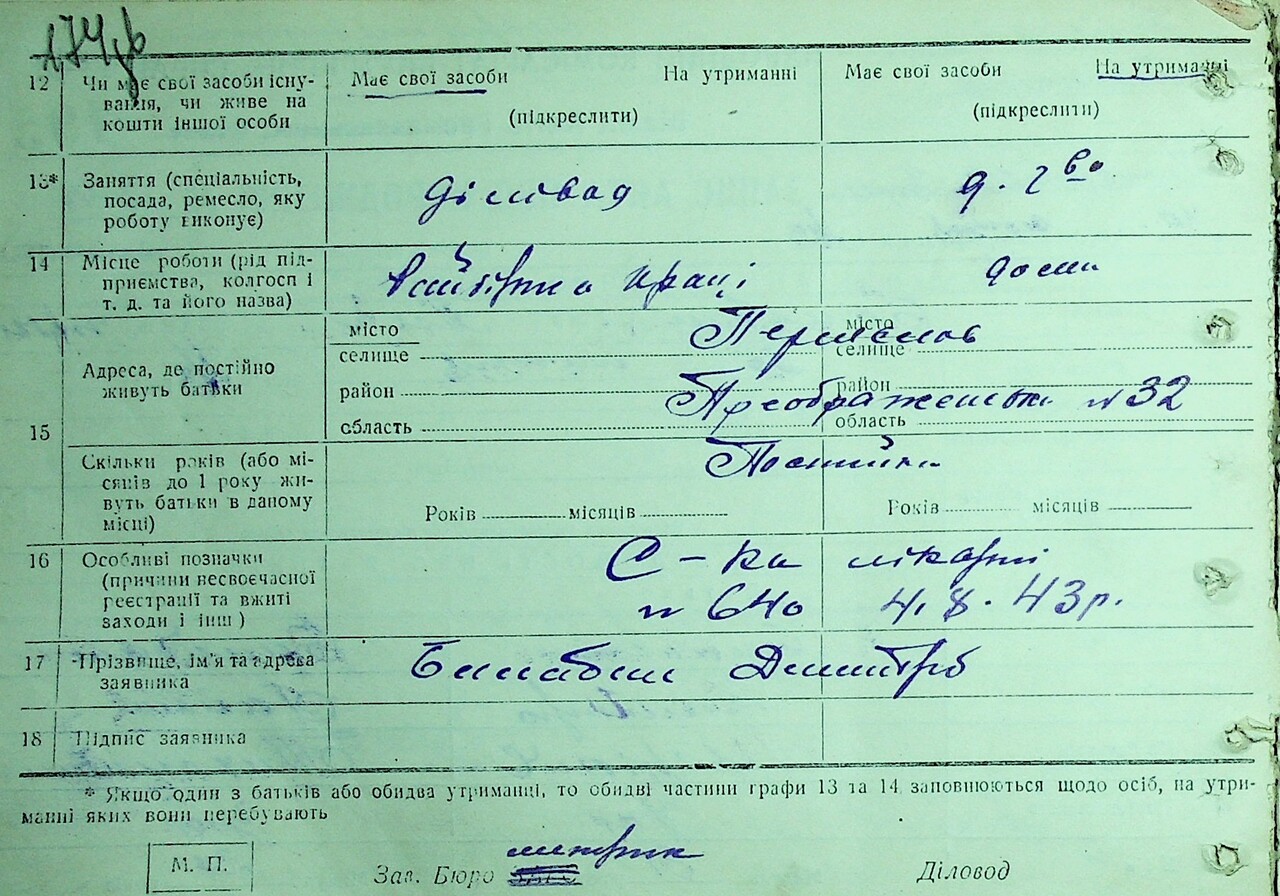 12 Чи має свої засоби існу-
вання, чи живе на
кошти іншої особи
Має свої засоби На утриманні
(підкреслити)
Має свої засоби На утриманні
(підкреслити)
13* Заняття (спеціальність,
посада, ремесло, яку
роботу виконує)
Діловод
д. г во
14 Місце роботи (рід під-
приємства, колгосп і
т. д. та його назва)
Праці
дома
15 Адреса, де постійно
живуть батьки
місто
селище
район
область
місто
селище
район
область
№ 32
Скільки років (або мі-
сяців до 1 року жи-
вуть батьки в даному
місці)
Постійно
Років місяців
Років місяців
16 Особливі позначки
(причини несвоєчасної
реєстрації та вжиті
заходи і інш )
С-ка лікарні
№ 640 4. X. 43 р.
17 Прізвище, ім'я та адреса
заявника
Балабан Дмитро
18 Підпис заявника
* Якщо один з батьків або обидва утриманці, то обидві частини графи 13 та 14 заповнюються щодо осіб, на утри-
манні яких вони перебувають
М. П.
метрик
Зав. Бюро ЗАГС Діловод